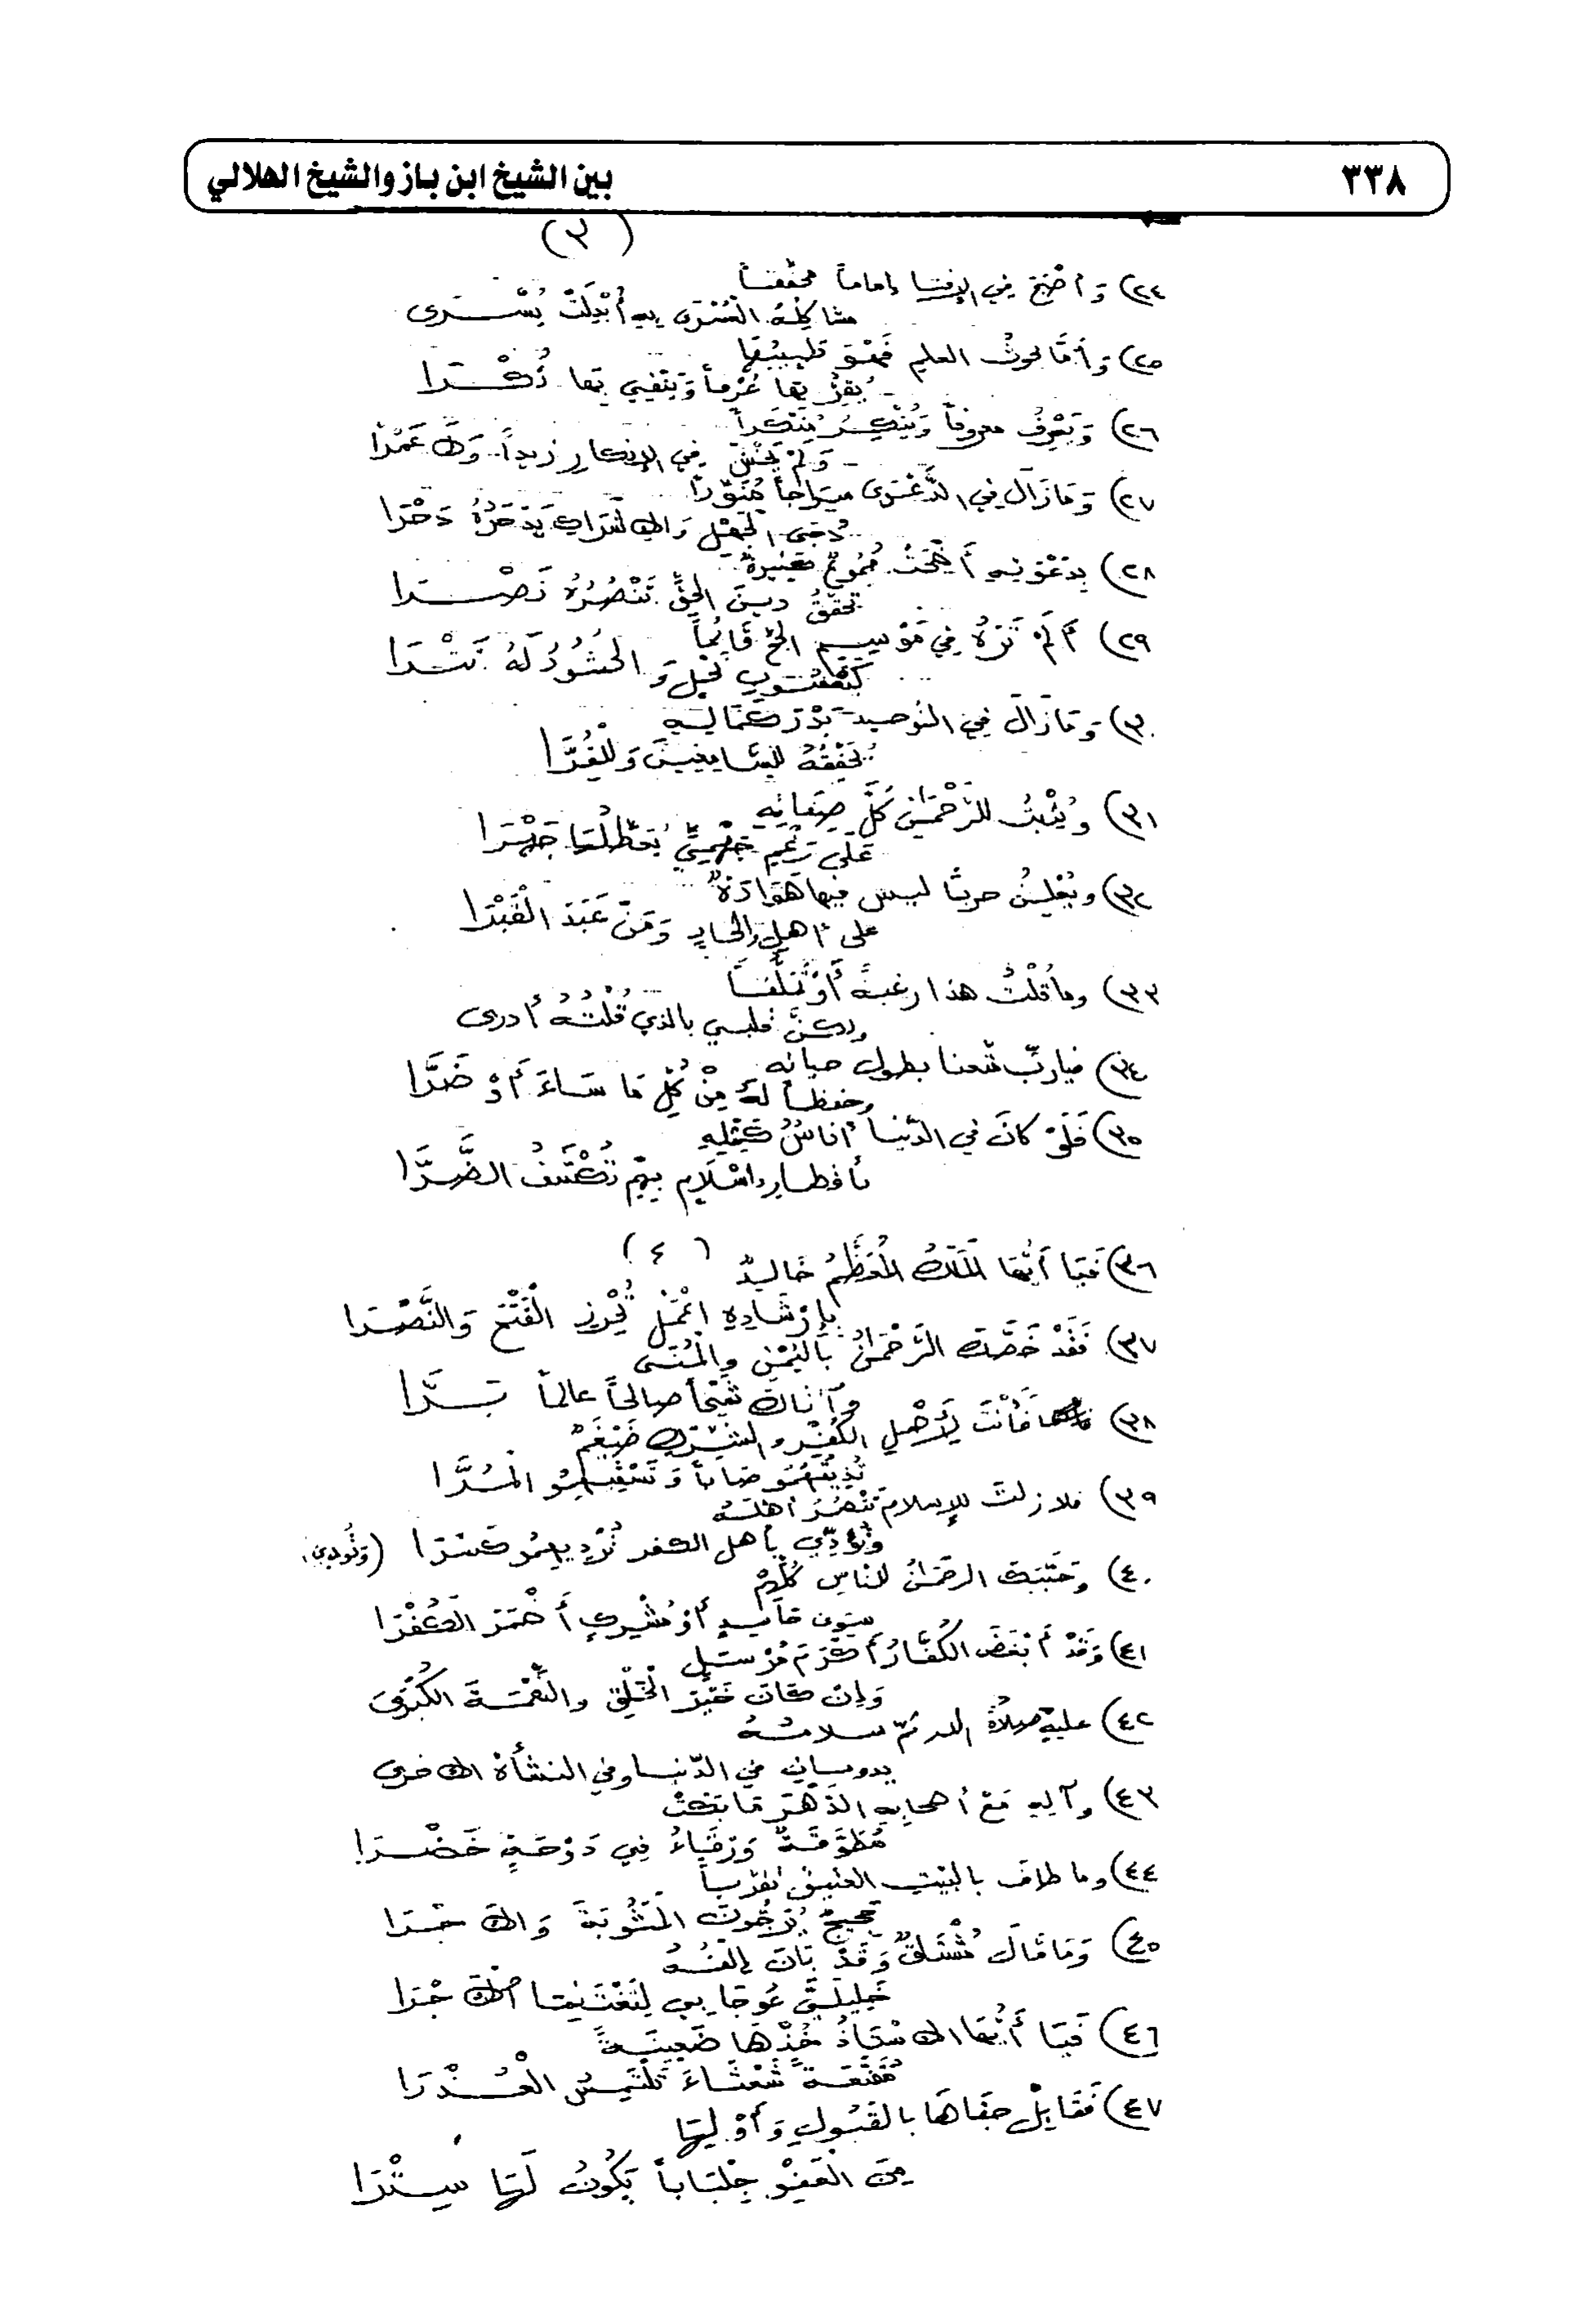 ٣٣٨
بين الشيخ ابن باز والشيخ الهلالي
(٣)
٢٤) وَأصْبَحَ في الإفتا إماماً محققاً
مشاكله العُسْرَى به أُبْدِلَتْ يُسْرَى
٢٥) وَأمَّا بحوثُ العلمِ فَهْوَ طَبِيبُهَا
يُقِرُّ بِهَا عُرْفاً وَيَنْفِي بِهَا نُكْرَا
٢٦) وَيَعْرِفُ معروفاً وَيُنْكِرُ مُنْكَراً
وَلَمْ يَخْشَ في الإنكارِ زيداً وَلاَ عَمْرَا
٢٧) وَمَازَالَ في الدَّعْوَى سِرَاجاً مُنَوِّراً
دُجَى الجَهْلِ وَالإشْرَاكِ يَدْحَرُهُ دَحْرَا
٢٨) بِدَعْوَتِهِ أَضْحَتْ جُمُوعٌ كثيرةٌ
تحققُ دينَ الحقِّ تَنْصُرُهُ نَصْرَا
٢٩) أَلَمْ تَرَهُ في مَوْسِمِ الحجِّ قَائِماً
كَيَعْسُوبِ نَحْلٍ وَالحُشُودُ لَهُ تَتْرَا
٣٠) وَمَازَالَ في التوحيدِ بَدْرَ كَمَالِهِ
يُحَقِّقُهُ للسَّامِعِينَ وَلِلْقُرَّا
٣١) ويُثْبِتُ للرَّحْمَنِ كُلَّ صِفَاتِهِ
عَلَى رَغْمِ جَهْمِيٍّ يُعَطِّلُهَا جَهْرَا
٣٢) ويُعْلِنُ حرباً ليس فيها هَوَادَةٌ
على أهلِ إلحادٍ وَمَنْ عَبَدَ الْقَبْرَا
٣٣) وما قُلْتُ هذا رغبةً أَوْ تَمَلُّقاً
ولكنَّ قلبي بالذي قُلْتُهُ أدرى
٣٤) فياربِّ متّعنا بطول حياته
وحفظاً لَهُ مِنْ كُلِّ مَا سَاءَ أَوْ ضَرَّا
٣٥) فَلَوْ كانَ في الدّنيا أناسٌ كَمِثْلِهِ
بأقطارِ إسْلاَمٍ بِهِمْ تَكْشِفُ الضُّرَّا
(٤)
٣٦) فَيَا أَيُّهَا المَلِكُ المُعَظَّمُ خَالِدٌ
بِإِرْشَادِهِ اعْمَلْ تُحْرِزِ الْفَتْحَ وَالنَّصْرَا
٣٧) فَقَدْ خَصَّكَ الرَّحْمَنُ بالْيُمْنِ والمُنَى
وآتاكَ شَيْخاً صالحاً عالماً بَرَّا
٣٨) فَأَنْتَ لأَهْلِ الكُفْرِ والشِّرْكِ ضَيْغَمٌ
تُذِيقُهُمُو صَاباً وَتَسْقِيهِمُو الْمُرَّا
٣٩) فلا زلتَ للإسلامِ تَنْصُرُ أهْلَهُ
وتُؤدِّي بأهل الكفر تُرْدِيهِمُو كَسْرَا (وَتُودِي)
٤٠) وَحَبَّبَكَ الرحمَانُ للناسِ كُلِّهِمْ
سِوَى حَاسِدٍ أَوْ مُشْرِكٍ أَضْمَرَ الكُفْرَا
٤١) وَقَدْ أَبْغَضَ الكُفَّارُ أَكْرَمَ مُرْسَلٍ
وَإنْ كَانَ خَيْرَ الْخَلْقِ والنِّعْمَةَ الكُبْرَى
٤٢) عليهِ صَلاةُ الله ثمّ سلامُهُ
يدومانِ في الدّنيا وفي النشأة الاخرى
٤٣) وآلِهِ مَعْ أصحابِهِ الدَّهْرَ مَا بَكَتْ
مُطَوَّقَةٌ وَرْقَاءُ فِي دَوْحَةٍ خَضْرَا
٤٤) وما طافَ بالبَيْتِ العتيقِ تقرّباً
حجيجٌ يُرَجُّونَ المَثُوبَةَ وَالاَجْرَا
٤٥) وَمَا قَالَ مُشْتَاقٌ وَقَدْ بَانَ إلْفُهُ
خَلِيلَيَّ عُوجَا بي لِنَغْتَنِمَا الاَجْرَا
٤٦) فَيَا أَيُّهَا الاسْتَاذُ خُذْهَا ضَعِينَةً
مُقَنَّعَةً شَعْثَاءَ تَلْتَمِسُ الْعُذْرَا
٤٧) فَقَابِلْ جفَاهَا بالقَبُولِ وَأَوْلِهَا
مِنَ الْعَفْوِ جِلْبَاباً يَكُونُ لَهَا سِتْرَا